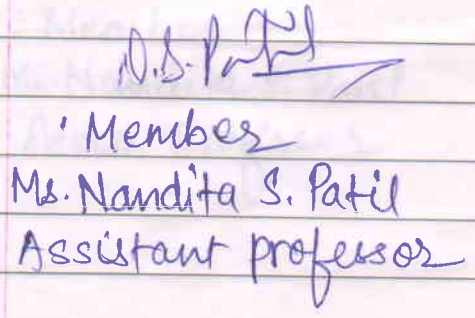 N.S. Patil
Member
Ms. Nandita S. Patil
Assistant professor